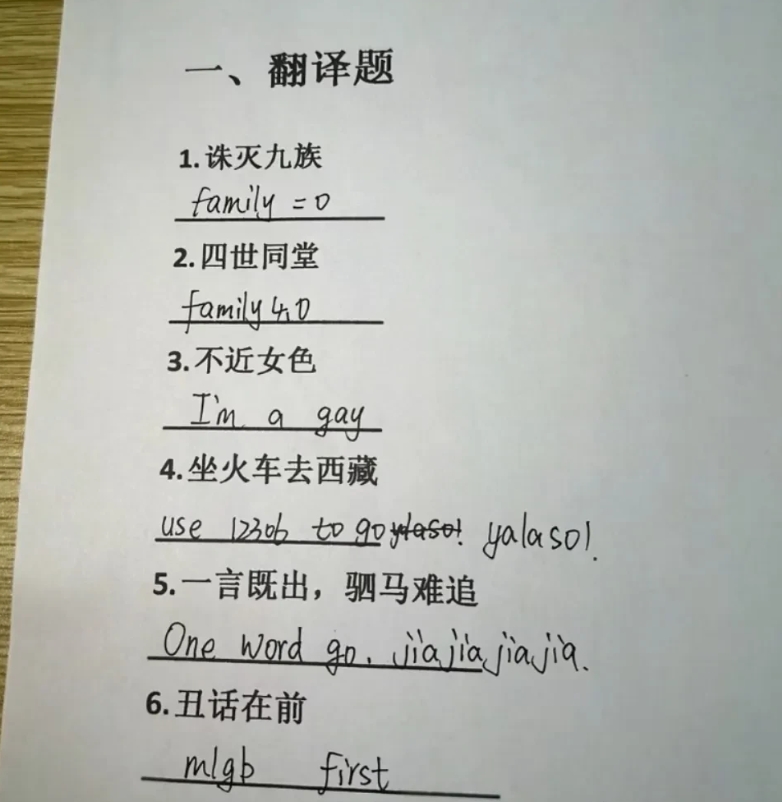 一、翻译题
1.诛灭九族
family = 0
2.四世同堂
family 4.0
3.不近女色
I'm a gay
4.坐火车去西藏
use 12306 to go yalaso! yalaso!.
5.一言既出，驷马难追
One word go. jiajiajiajia.
6.丑话在前
mlgb first